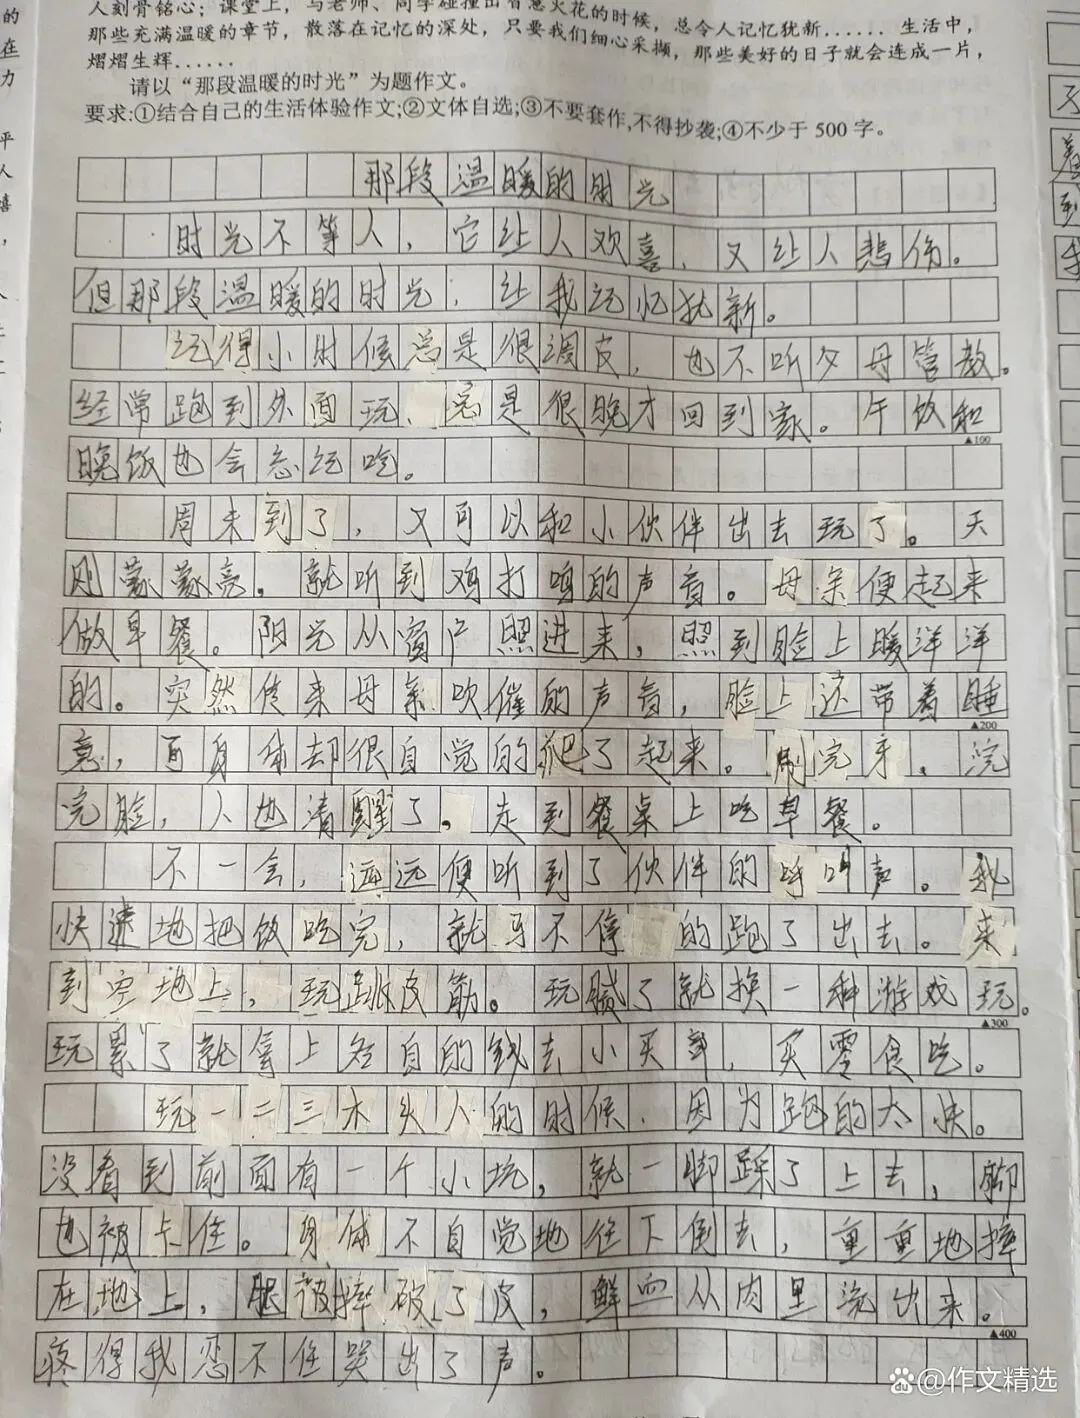 人刻骨铭心；课堂上，与老师、同学碰撞出智慧火花的时候，总令人记忆犹新……生活中，
那些充满温暖的章节，散落在记忆的深处，只要我们细心采撷，那些美好的日子就会连成一片，
熠熠生辉……
请以“那段温暖的时光”为题作文。
要求:①结合自己的生活体验作文;②文体自选;③不要套作,不得抄袭;④不少于500字。
那段温暖的时光
时光不等人，它让人欢喜、又让人悲伤。
但那段温暖的时光，让我记忆犹新。
记得小时候总是很调皮，也不听父母管教。
经常跑到外面玩、总是很晚才回到家。午饭和
▲100
晚饭也会忘记吃。
周末到了，又可以和小伙伴出去玩了。天
刚蒙蒙亮。就听到鸡打鸣的声音。母亲便起来
做早餐。阳光从窗户照进来，照到脸上暖洋洋
的。突然传来母亲吹催的声音，脸上还带着睡
▲200
意，而身体却很自觉的爬了起来。刷完牙、洗
完脸，人也清醒了。走到餐桌上吃早餐。
不一会，远远便听到了伙伴的呼叫声。我
快速地把饭吃完，就马不停的跑了出去。来
到空地上，玩跳皮筋。玩腻了就换一种游戏玩。
▲300
玩累了就拿上各自的钱去小买部，买零食吃。
玩一二三木头人的时候、因为跑的太快。
没看到前面有一个小坑，就一脚踩了上去，脚
也被卡住。身体不自觉地往下倒去，重重地摔
在地上，腿被摔破了皮，鲜血从肉里流出来。
▲400
疼得我忍不住哭出了声。
的
在
力
平
人
喜
，
@作文精选